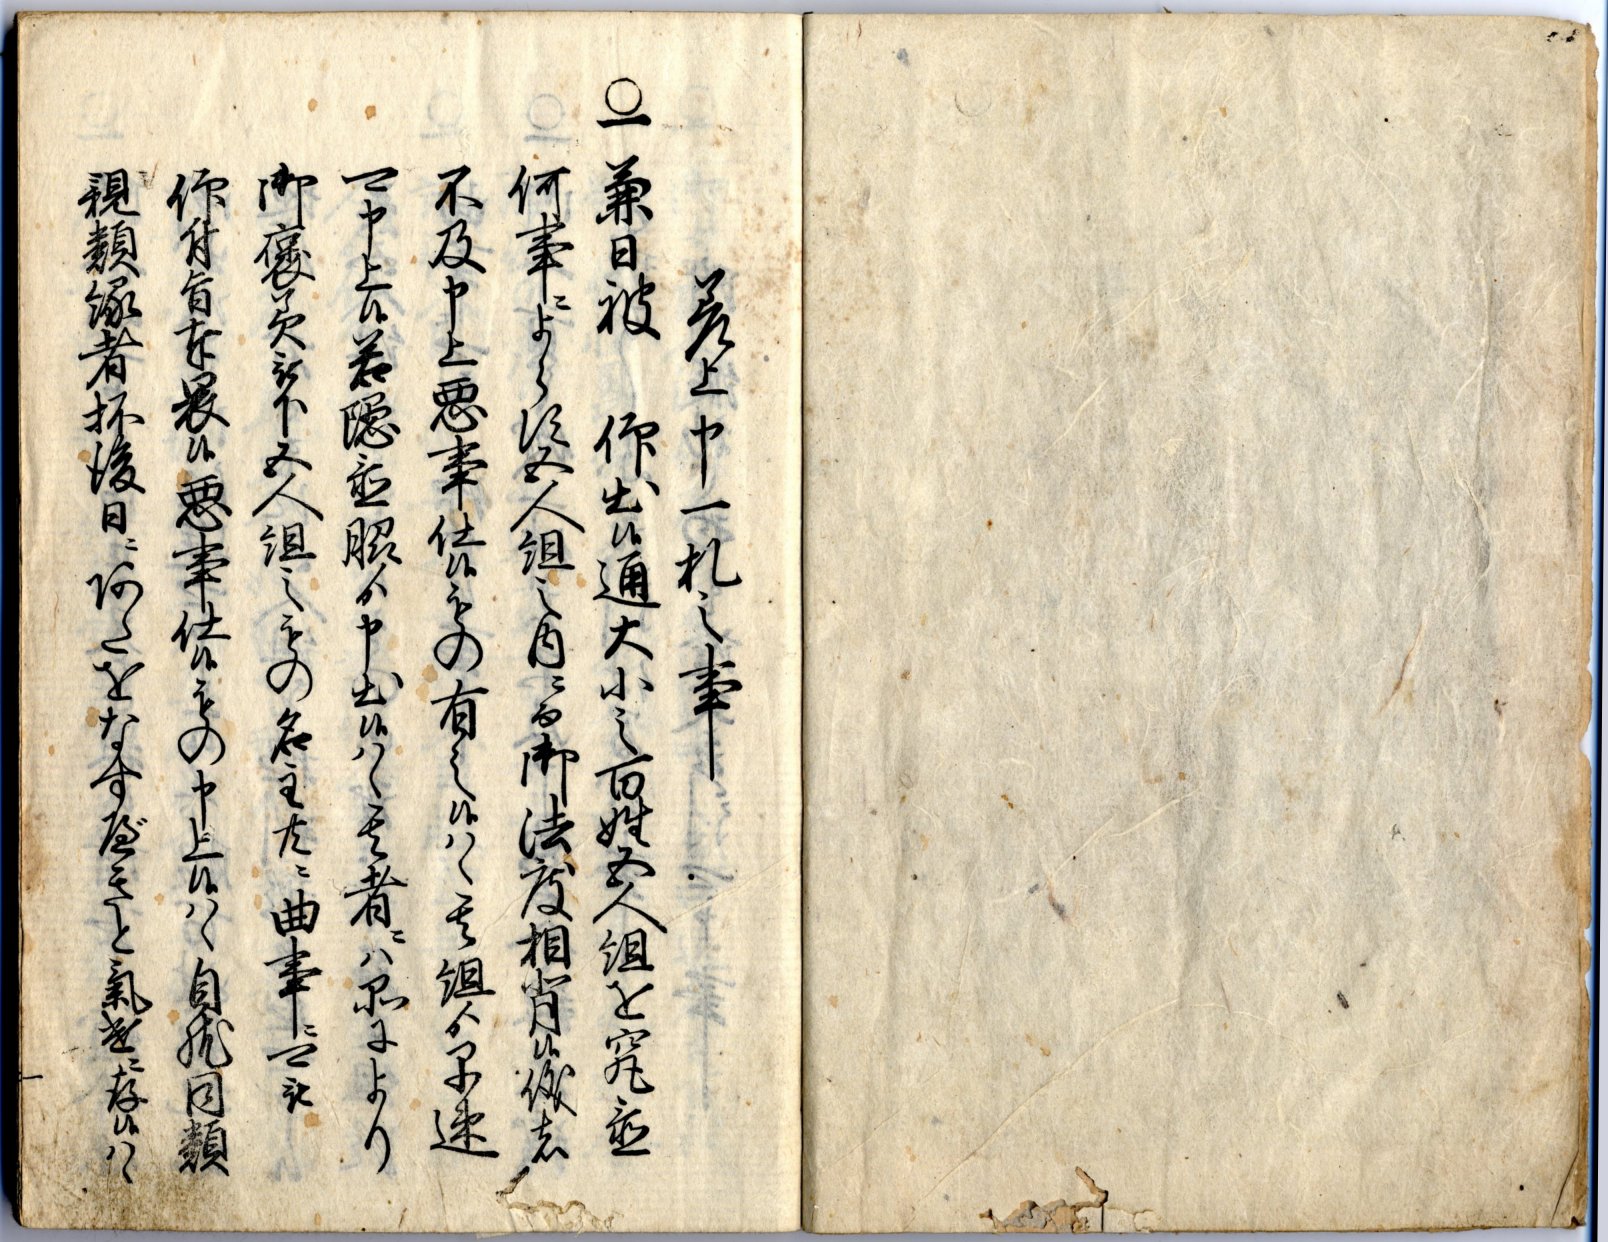 差上申一札之事
〇一 兼日被　仰出候通大小之百姓五人組を究置
何事ニよらす五人組之内ニ而御法度相背候儀者
不及申上悪事仕候もの有之候ハヽ其組ゟ早速
可申上候若隠置脇ゟ申出候ハヽ其者ニハ品により
御褒美被下五人組之もの名主共ニ曲事ニ可被
仰付旨奉畏候悪事仕候もの申上候ハヽ自然同類
親類縁者抔後日ニあたをなすへきと気遣ニ存候ハヽ